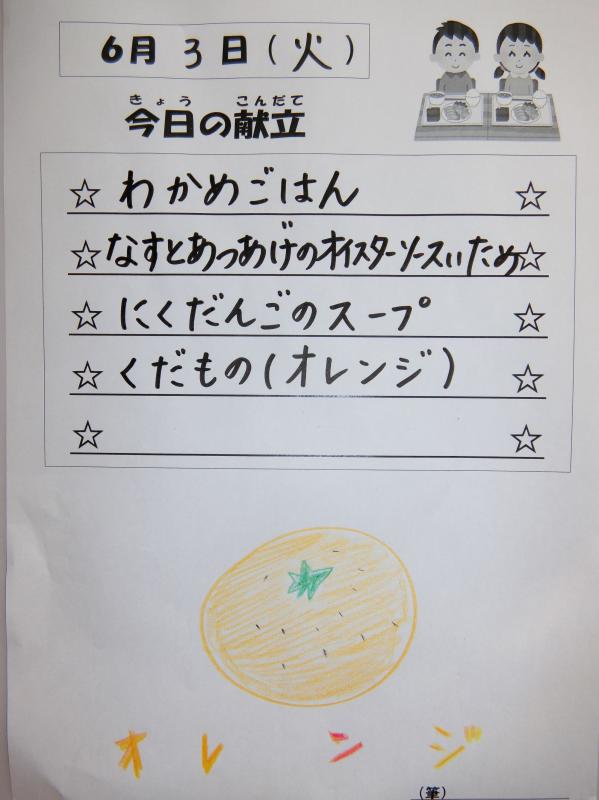 6月 3日(火)
きょう こんだて
今日の献立
☆わかめごはん☆
☆なすとあつあげのオイスターソースいため☆
☆にくだんごのスープ☆
☆くだもの(オレンジ)☆
☆ ☆
オレンジ
(筆)